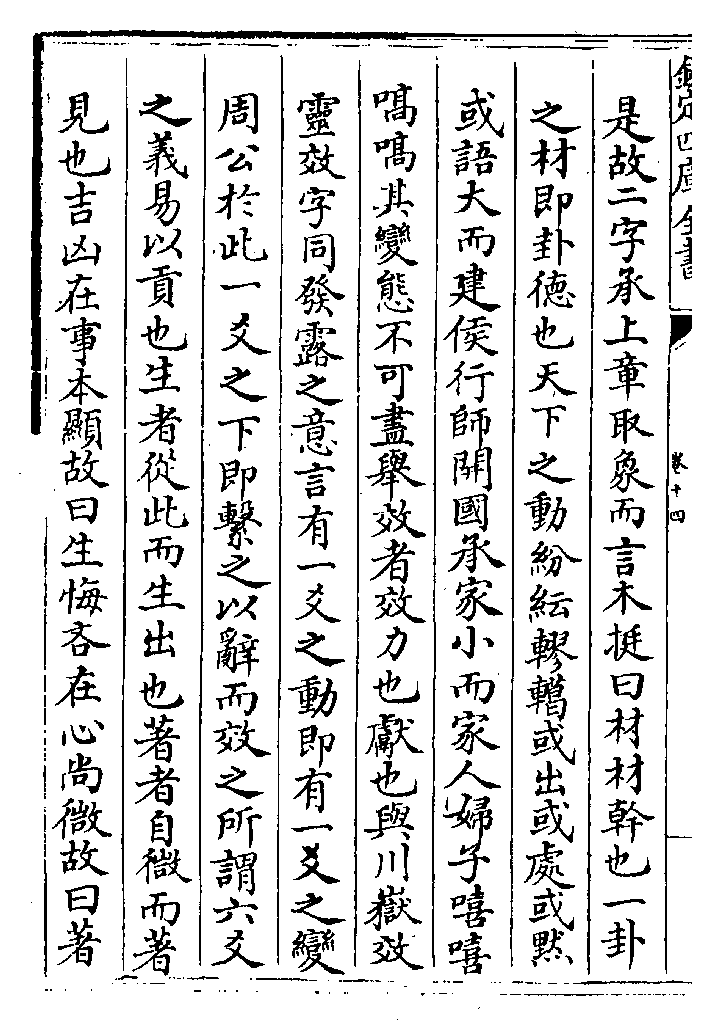 欽定四庫全書
卷十四
是故二字承上章取象而言木挺曰材材幹也一卦
之材即卦德也天下之動紛紜轇轕或出或處或黙
或語大而建侯行師開國承家小而家人婦子嘻嘻
嗃嗃其變態不可盡舉效者效力也獻也與川嶽效
靈效字同發露之意言有一爻之動即有一爻之變
周公於此一爻之下即繫之以辭而效之所謂六爻
之義易以貢也生者從此而生出也著者自微而著
見也吉凶在事本顯故曰生悔吝在心尚微故曰著